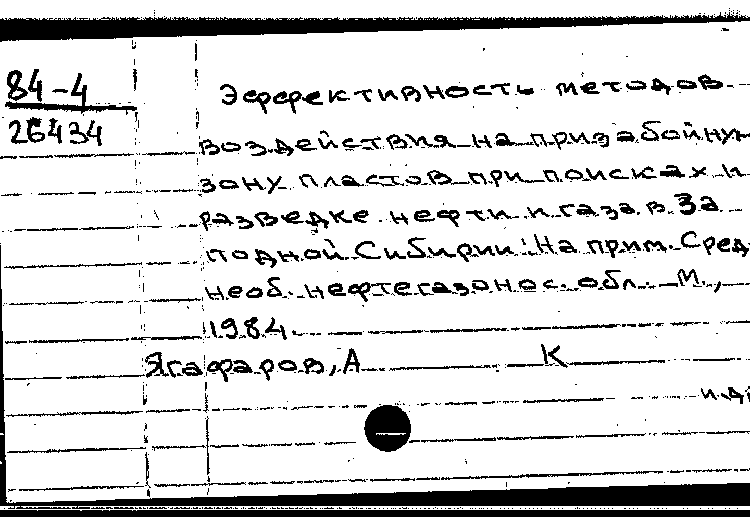 84-4
26434
Эффективность методов
воздействия на призабойную
зону пластов при поисках и
разведке нефти и газа в За
подной Сибири: На прим. Сред
необ. нефтегазонос. обл. М.,
1984.
Ягафаров, А К